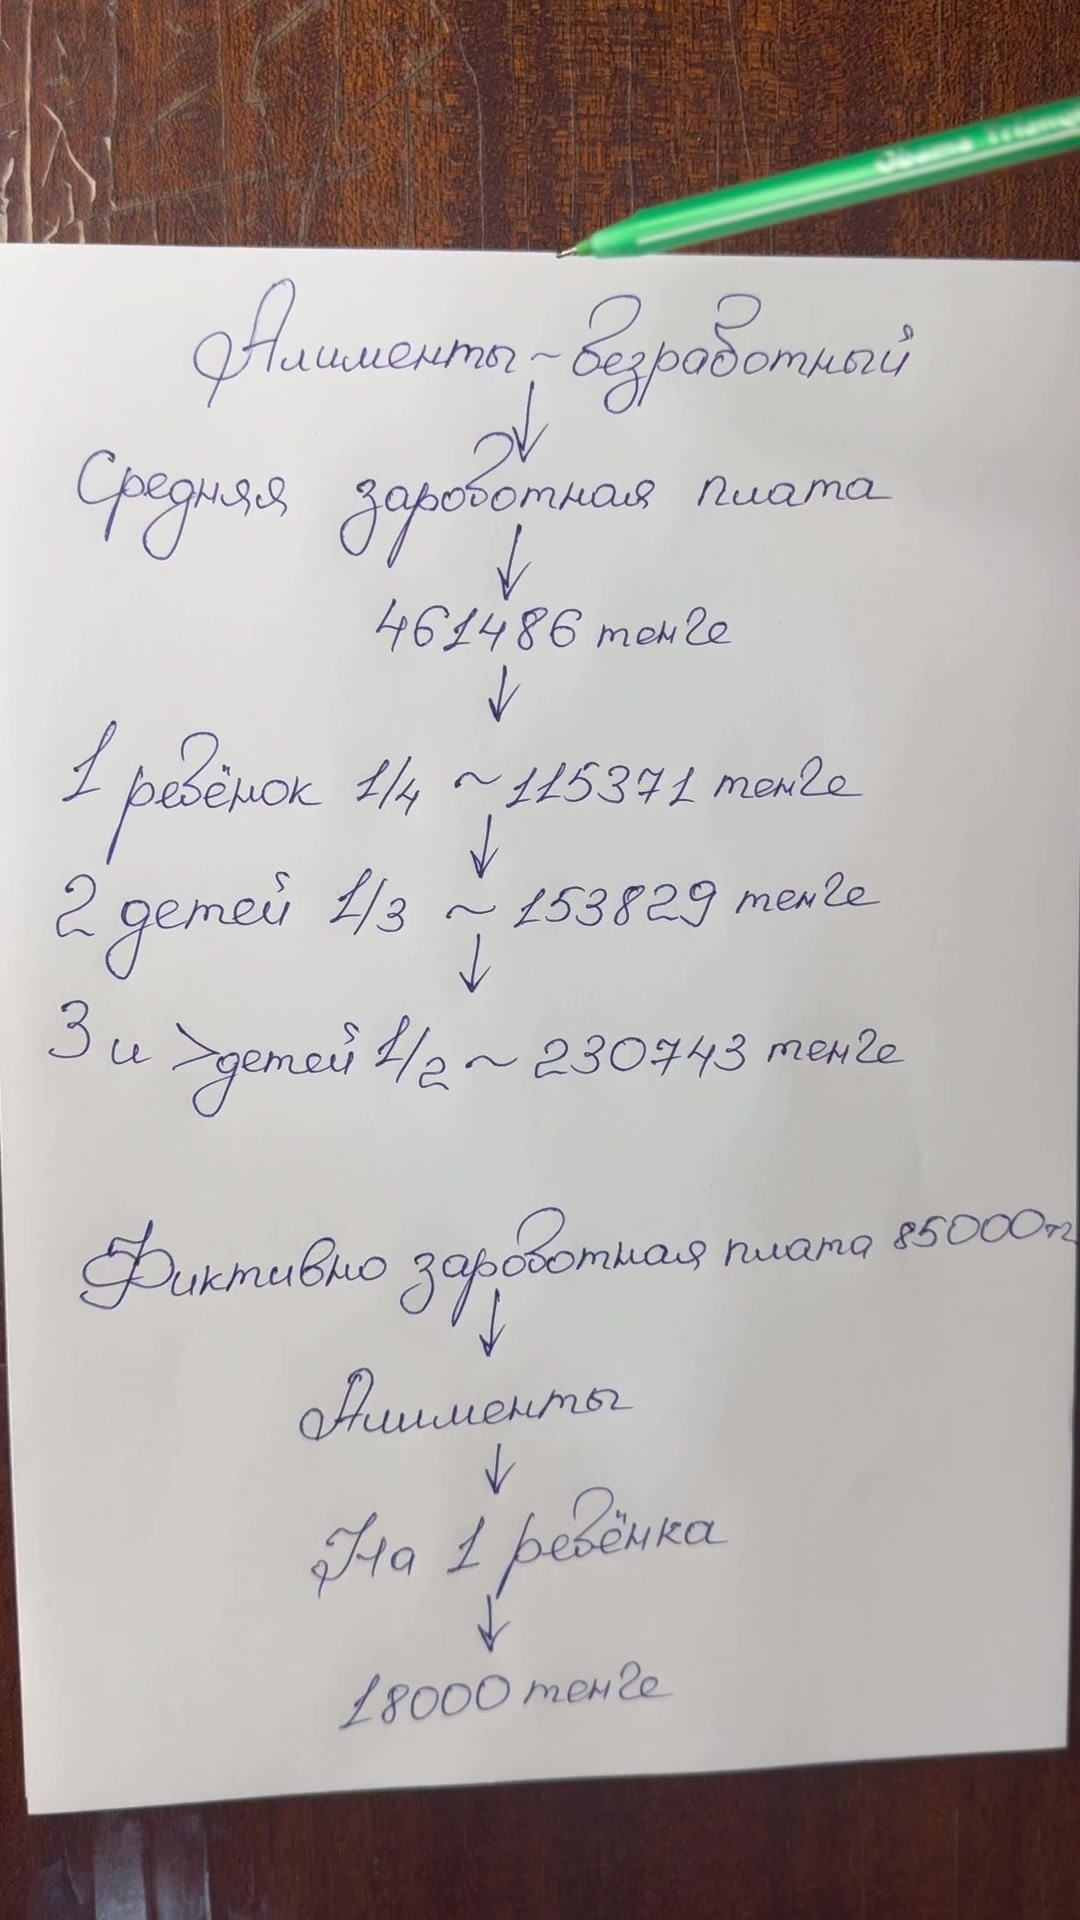 Алименты ~ безработный
Средняя зароботная плата
461486 тенге
1 ребёнок 1/4 ~ 115371 тенге
2 детей 1/3 ~ 153829 тенге
3 и >детей 1/2 ~ 230743 тенге
Фиктивно зароботная плата 85000тг
Алименты
На 1 ребёнка
18000 тенге